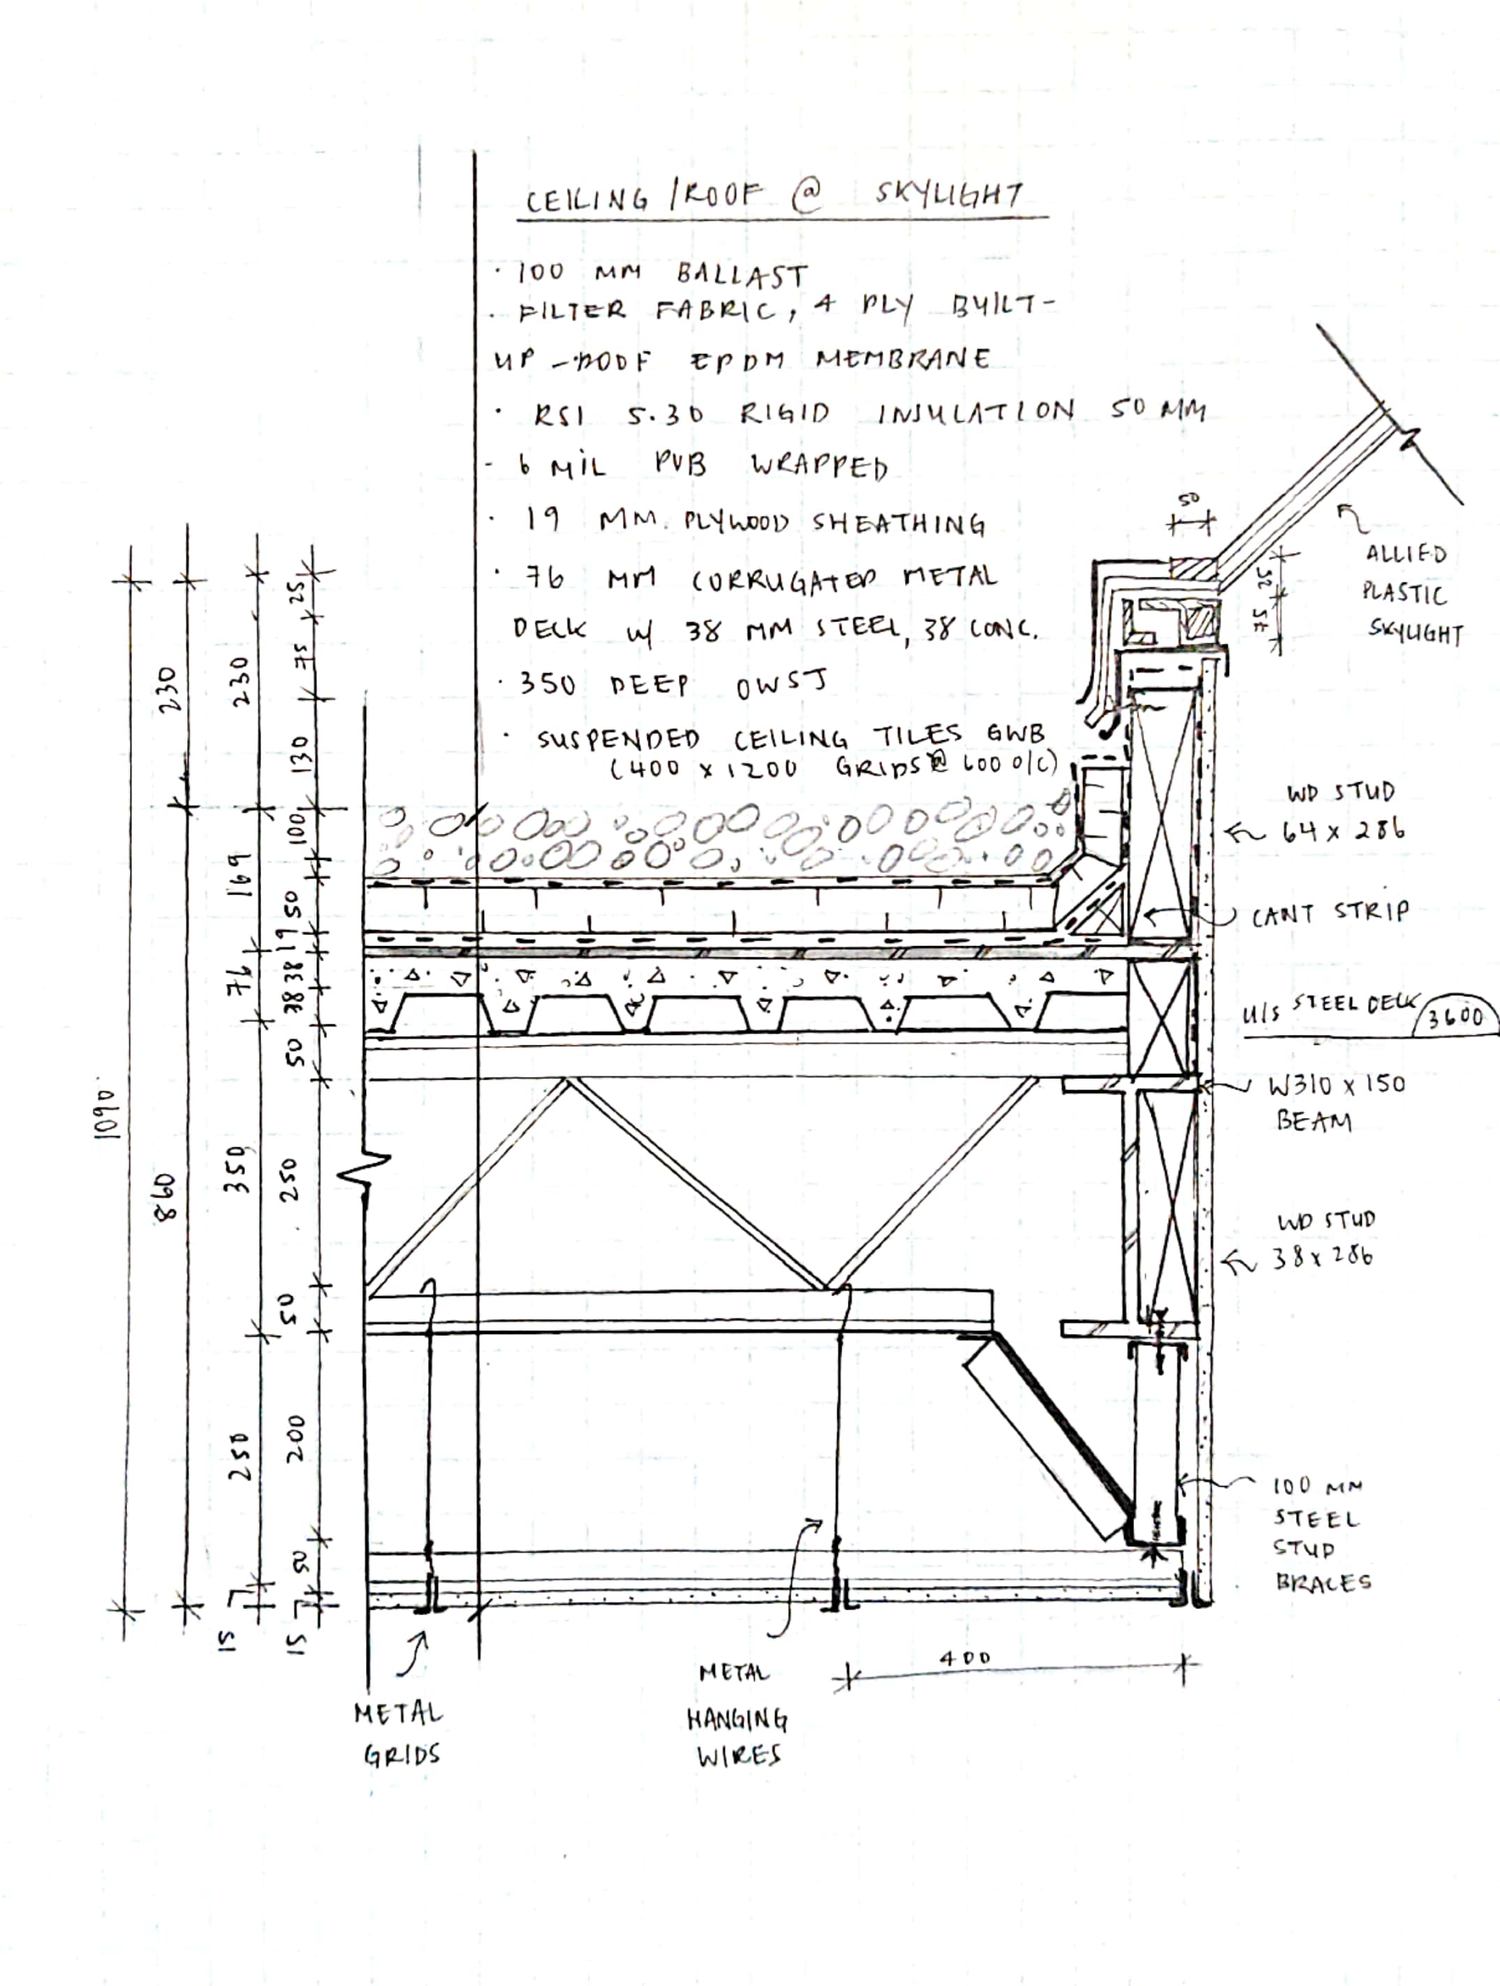 CEILING /ROOF @ SKYLIGHT
· 100 MM BALLAST
· FILTER FABRIC, 4 PLY BUILT-
UP -ROOF EPDM MEMBRANE
· RSI 5.30 RIGID INSULATION 50 MM
- 6 MIL PVB WRAPPED
· 19 MM. PLYWOOD SHEATHING
· 76 MM CORRUGATED METAL
DECK W/ 38 MM STEEL, 38 CONC.
· 350 DEEP OWSJ
· SUSPENDED CEILING TILES GWB
(400 x 1200 GRIDS @ 600 O/C)
50
ALLIED
PLASTIC
SKYLIGHT
WD STUD
64 x 286
CANT STRIP
U/S STEEL DECK 3600
W310 x 150
BEAM
WD STUD
38 x 286
100 MM
STEEL
STUD
BRACES
400
METAL
HANGING
WIRES
METAL
GRIDS
1090
230
860
230
169
76
350
250
15
25
75
130
100
50
19
38
38
50
250
50
200
50
15